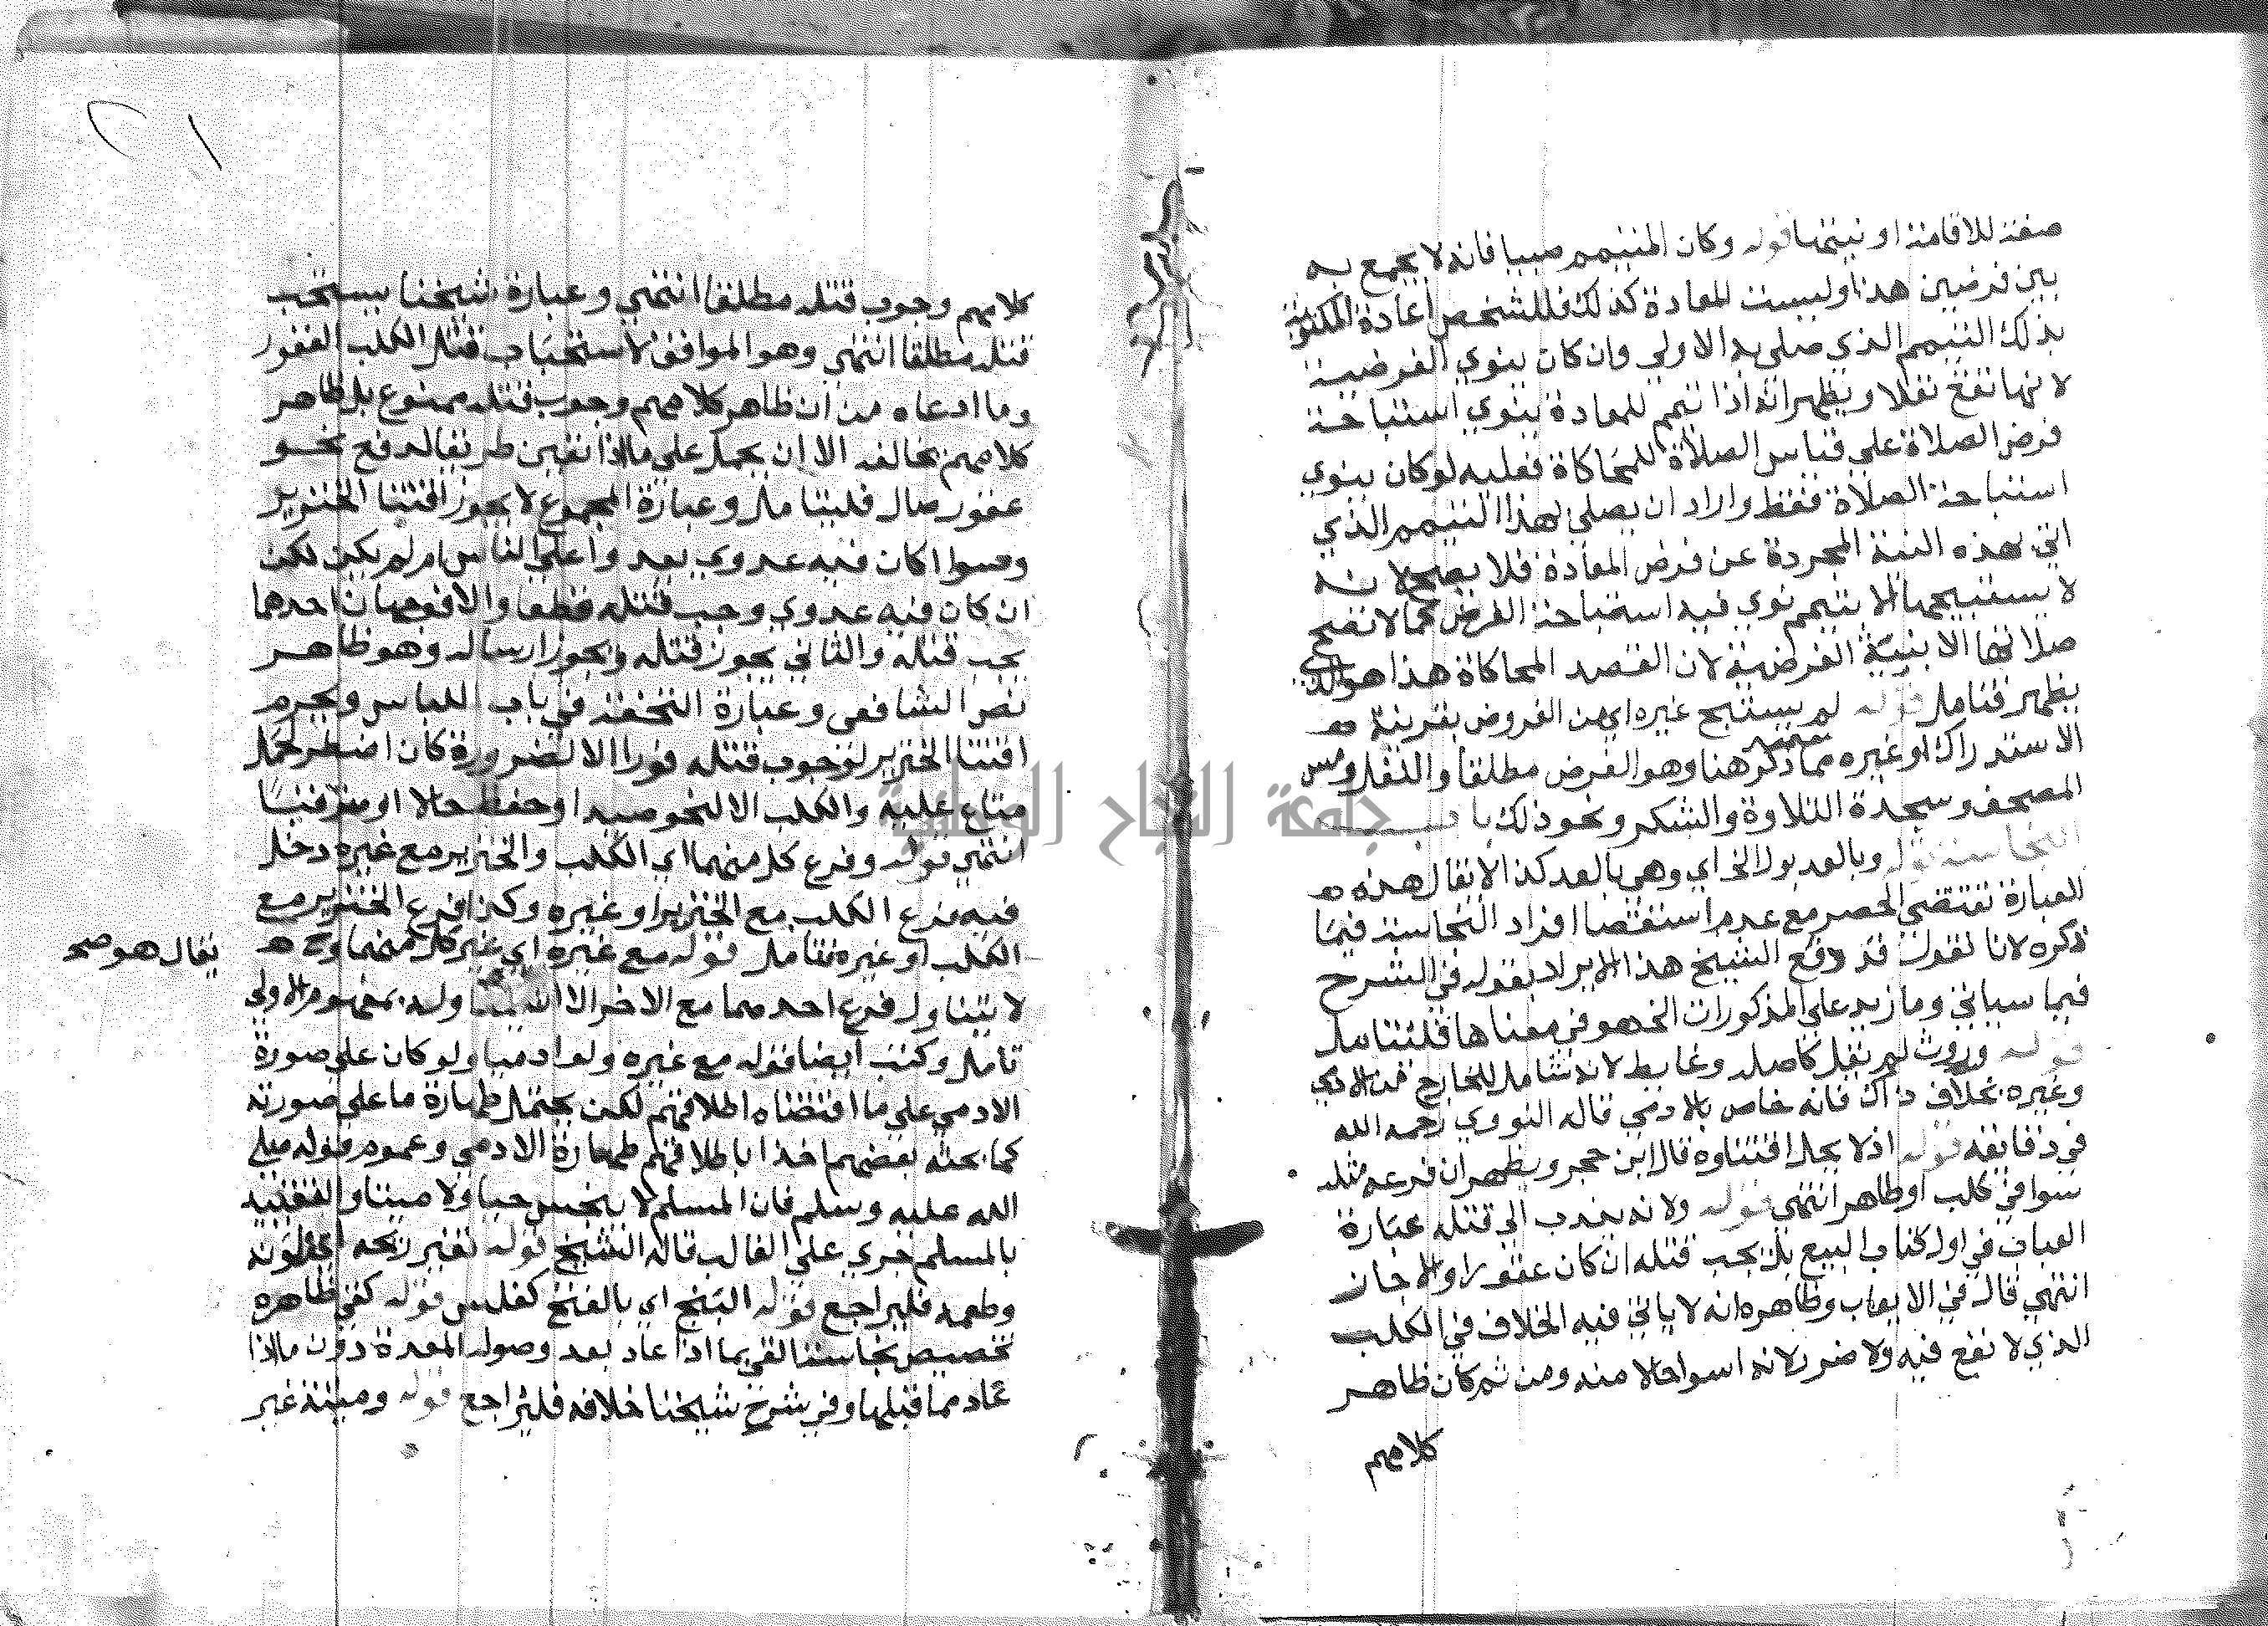 صفة للاقامة او نيتها قوله وكان المتيمم صبيا فانه لا يجمع به
بين فرضين هذا وليست المعادة كذلك فللشخص اعادة المكتوبة
بذلك التيمم الذي صلى به الاولى وان كان ينوي الفرضية
لانها تقع نفلا ويظهر انه اذا تيمم للمعادة ينوي استباحة
فرض الصلاة على قياس الصلاة للمحاكاة فعليه لو كان ينوي
استباحة الصلاة فقط واراد ان يصلي بهذا التيمم الذي
اتى بهذه النية المجردة عن فرض المعادة فلا يصح لانه
لا يستبيحها الا بتيمم نوي فيه استباحة الفرض كما لا تصح
صلاتها الا بنية الفرضية لان القصد المحاكاة هذا هو الذي
يظهر فتامل قوله لم يستبح غيره اي من الفروض بقرينة
الاستدراك او غيره مما ذكر هنا وهو الفرض مطلقا والنفل ومس
المصحف وسجدة التلاوة والشكر ونحو ذلك باب
النجاسة قوله وبالعد بول الخ اي وهي بالعد كذا لا يقال هذه
العبارة تقتضي الحصر مع عدم استقصا افراد النجاسة فيما
ذكره لانا نقول قد دفع الشيخ هذا الايراد بقوله في الشرح
فيما سياتي وما زيد على المذكورات الخ هو في معناها فليتامل
قوله وروث لم يقل كاصله وغايط لانه شامل للخارج من الادمي
وغيره بخلاف ذاك فانه خاص بالادمي قاله النووي رحمه الله
في دقائقه قوله اذ لا يحل اقتناوه قال ابن حجر ويظهر ان فرعه مثله
سوا في كلب او طاهر انتهى قوله ولانه يندب الى قتله عبارة
العباب في اول كتاب البيع بل يجب قتله ان كان عقورا والا جاز
انتهى قال في الايعاب وظاهره انه لا ياتي فيه الخلاف في الكلب
الذي لا نفع فيه ولا ضرر لانه اسوا حالا منه ومن ثم كان ظاهر
كلامهم
كلامهم وجوب قتله مطلقا انتهى وعبارة شيخنا يستحب
قتله مطلقا انتهى وهو الموافق لاستحباب قتل الكلب العقور
وما ادعاه من ان ظاهر كلامهم وجوب قتله ممنوع بل ظاهر
كلامهم يخالفه الا ان يحمل على ما اذا تعين طريقا لدفع نحو
عقور صال فليتامل وعبارة المجموع لا يجوز اقتنا الخنزير
وسوا كان فيه عدوي يعد واعلى الناس ام لم يكن لكن
ان كان فيه عدوي وجب قتله قطعا والا فوجهان احدهما
يجب قتله والثاني يجوز قتله ويجوز ارساله وهو ظاهر
نص الشافعي وعبارة التحفة في باب اللباس ويحرم
اقتنا الخنزير لوجوب قتله فورا الا لضرورة كان اضطر لحمل
متاع عليه والكلب الا لنحو صيد او حفظ حالا او مترقبا
انتهى قوله وفرع كل منهما اي الكلب والخنزير مع غيره دخل
فيه فرع الكلب مع الخنزير او غيره وكذا فرع الخنزير مع
الكلب او غيره فتامل قوله مع غيره اي غير كل منهما وح
يقال هو صح
لا يتناول فرع احدهما مع الاخر الا ولد بمفهوم الاولى
تامل وكتب ايضا قوله مع غيره ولو ادميا ولو كان على صورة
الادمي على ما اقتضاه اطلاقهم لكن يحتمل طهارة ما على صورته
كما بحثه بعضهم اخذا باطلاقهم طهارة الادمي وعموم قوله صلى
الله عليه وسلم فان المسلم لا ينجس حيا ولا ميتا والتقييد
بالمسلم جري على الغالب قاله الشيخ قوله تغير ريحه اي ولونه
وطعمه فليراجع قوله البنج اي بالفتح كفلس قوله كقي ظاهره
تخصيص نجاسة القي بما اذا عاد بعد وصوله المعدة دون ما اذا
عاد مما قبلها وفي شرح شيخنا خلافه فليراجع قوله وميتة غير